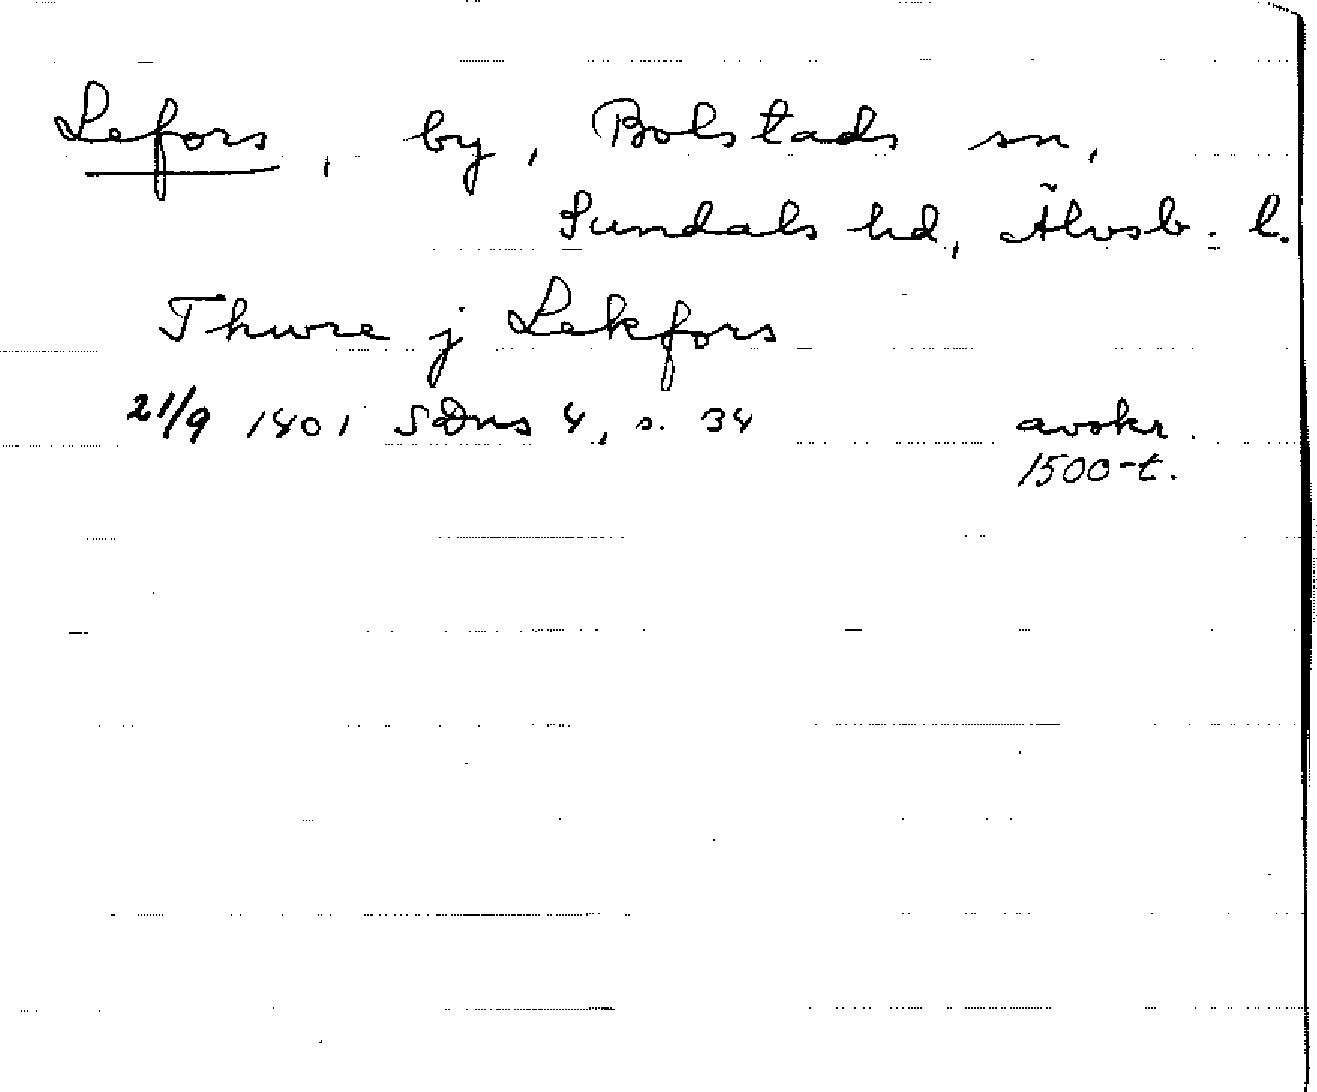 Lefors, by, Bolstads sn,
Sundals hd, Älvsb. l.
Thure j Lekfors
21/9 1401 SDns 4, s. 34 avskr.
1500-t.